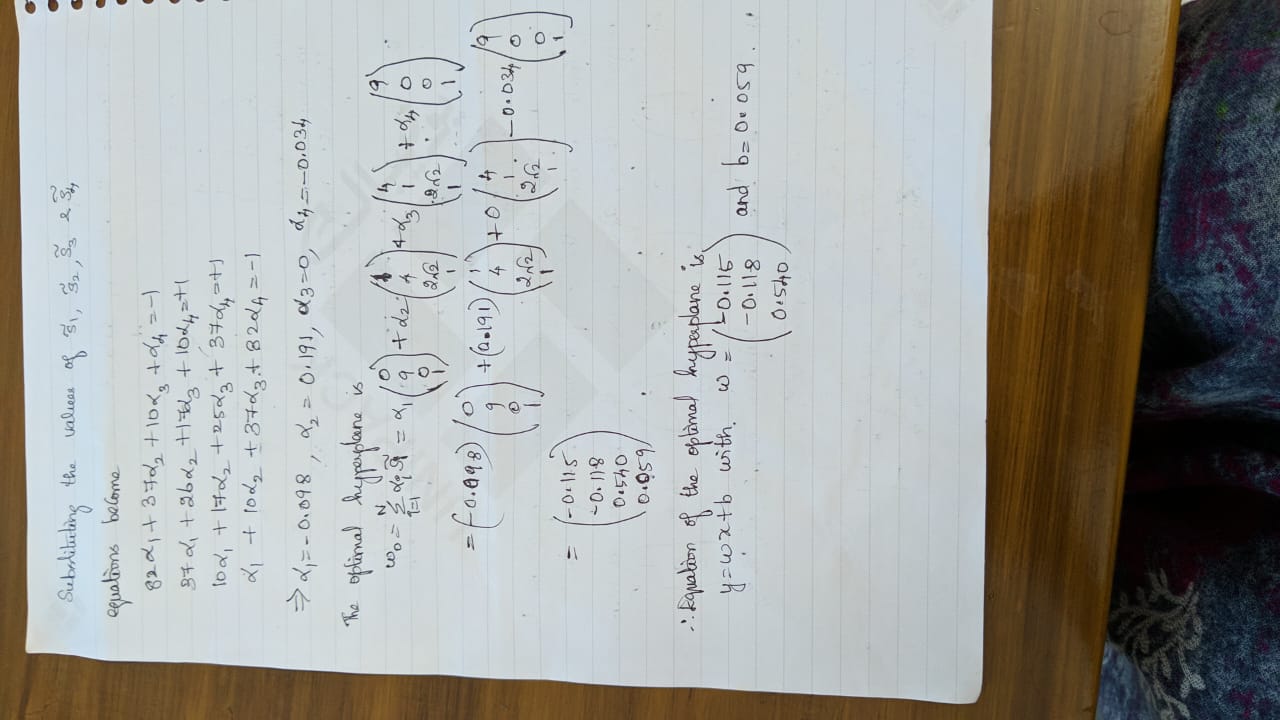 Substituting the values of s̃1, s̃2, s̃3 & s̃4
equations become
82α1 + 37α2 + 10α3 + α4 = -1
37α1 + 26α2 + 17α3 + 10α4 = +1
10α1 + 17α2 + 25α3 + 37α4 = +1
α1 + 10α2 + 37α3 + 82α4 = -1
⇒ α1 = -0.098, α2 = 0.191, α3 = 0, α4 = -0.034
The optimal hyperplane is
w0 = Σ_{i=1}^{N} αi s̃i = α1 (0 9 0 1) + α2 (1 4 2√2 1) + α3 (4 1 2√2 1) + α4 (9 0 0 1)
= (-0.098) (0 9 0 1) + (0.191) (1 4 2√2 1) + 0 (4 1 2√2 1) - 0.034 (9 0 0 1)
= (-0.115 -0.118 0.540 0.059)
∴ Equation of the optimal hyperplane is
y = wx + b with w = (-0.115 -0.118 0.540) and b = 0.059.